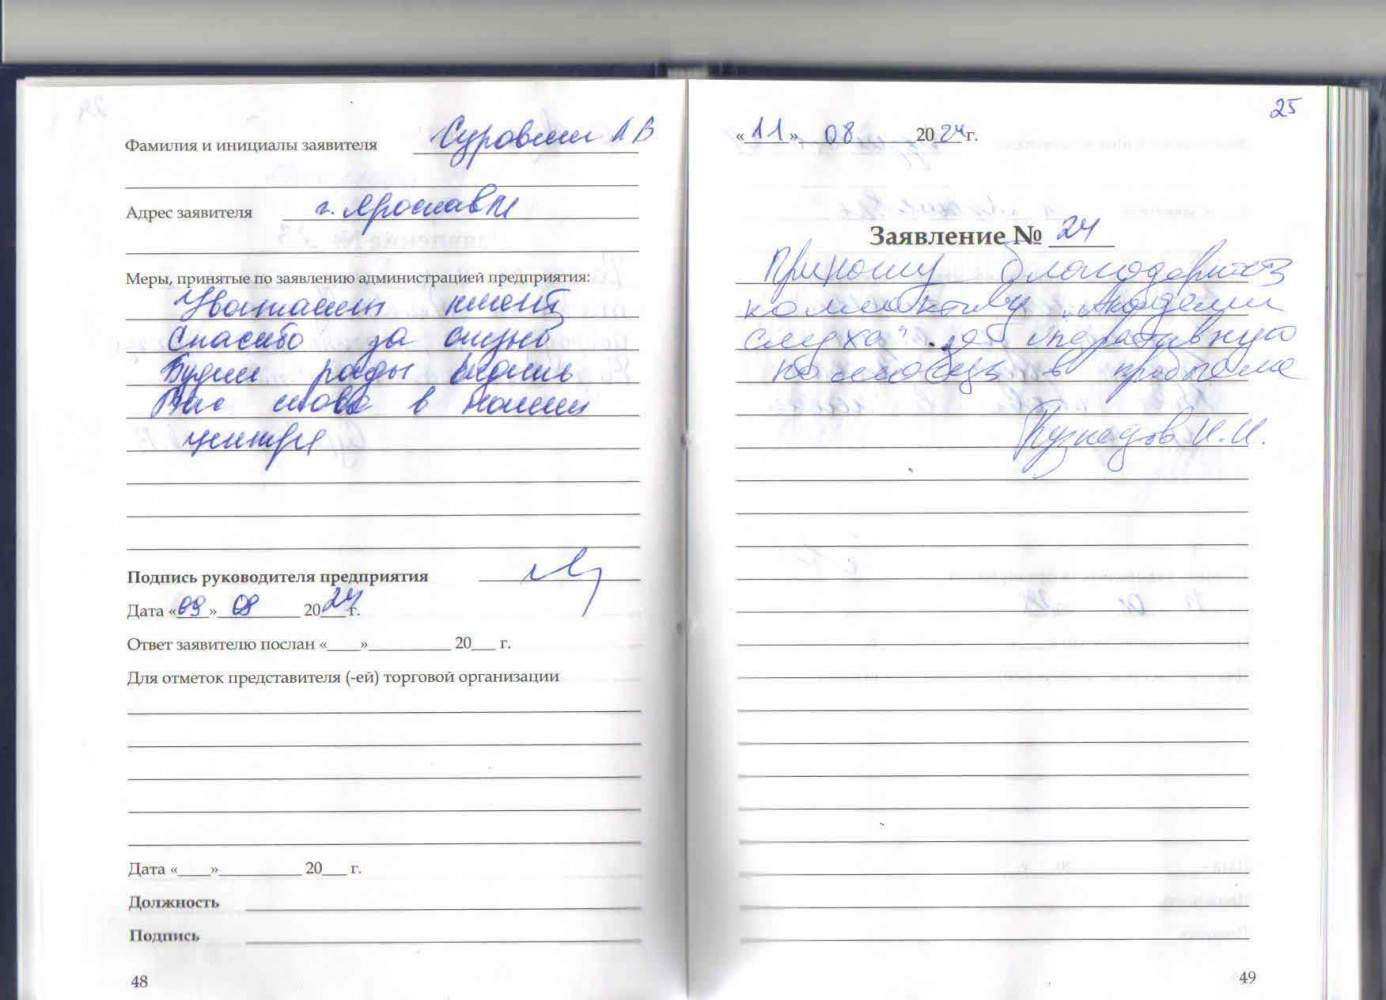 Фамилия и инициалы заявителя Суровкин А В
Адрес заявителя г. Ярославль
Меры, принятые по заявлению администрацией предприятия:
Уважаемый клиент
Спасибо за отзыв
Будем рады видеть
Вас снова в нашем
центре
Подпись руководителя предприятия
Дата «09» 08 2024 г.
Ответ заявителю послан «____»__________ 20___ г.
Для отметок представителя (-ей) торговой организации
Дата «____»__________ 20___ г.
Должность
Подпись
48
25
«11» 08 2024г.
Заявление № 24
Приношу благодарность
коллективу "Академии
слуха" за оперативную
помощь в
Кузнецов И.И.
49